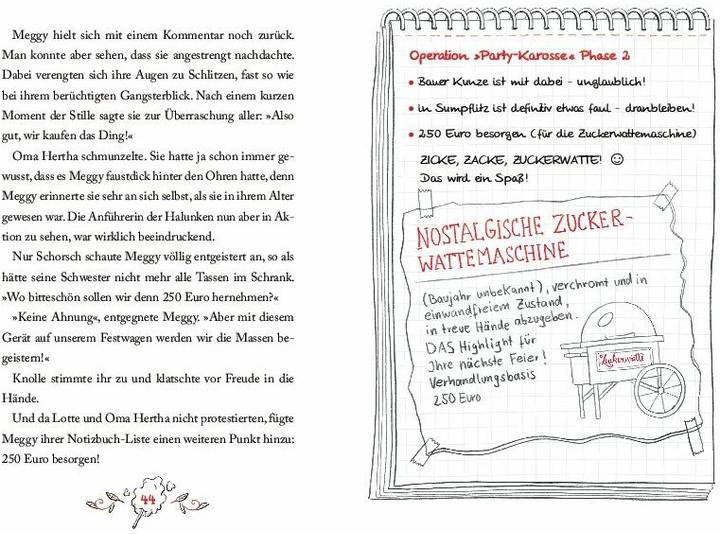 Meggy hielt sich mit einem Kommentar noch zurück.
Man konnte aber sehen, dass sie angestrengt nachdachte.
Dabei verengten sich ihre Augen zu Schlitzen, fast so wie
bei ihrem berüchtigten Gangsterblick. Nach einem kurzen
Moment der Stille sagte sie zur Überraschung aller: »Also
gut, wir kaufen das Ding!«
Oma Hertha schmunzelte. Sie hatte ja schon immer ge-
wusst, dass es Meggy faustdick hinter den Ohren hatte, denn
Meggy erinnerte sie sehr an sich selbst, als sie in ihrem Alter
gewesen war. Die Anführerin der Halunken nun aber in Ak-
tion zu sehen, war wirklich beeindruckend.
Nur Schorsch schaute Meggy völlig entgeistert an, so als
hätte seine Schwester nicht mehr alle Tassen im Schrank.
»Wo bitteschön sollen wir denn 250 Euro hernehmen?«
»Keine Ahnung«, entgegnete Meggy. »Aber mit diesem
Gerät auf unserem Festwagen werden wir die Massen be-
geistern!«
Knolle stimmte ihr zu und klatschte vor Freude in die
Hände.
Und da Lotte und Oma Hertha nicht protestierten, fügte
Meggy ihrer Notizbuch-Liste einen weiteren Punkt hinzu:
250 Euro besorgen!
44
Operation »Party-Karosse« Phase 2
• Bauer Kunze ist mit dabei – unglaublich!
• in Sumpflitz ist definitiv etwas faul – dranbleiben!
• 250 Euro besorgen (für die Zuckerwattemaschine)
ZICKE, ZACKE, ZUCKERWATTE! ☺
Das wird ein Spaß!
NOSTALGISCHE ZUCKER-
WATTEMASCHINE
(Baujahr unbekannt), verchromt und in
einwandfreiem Zustand,
in treue Hände abzugeben.
DAS Highlight für
Ihre nächste Feier!
Verhandlungsbasis
250 Euro
Zuckerwatte